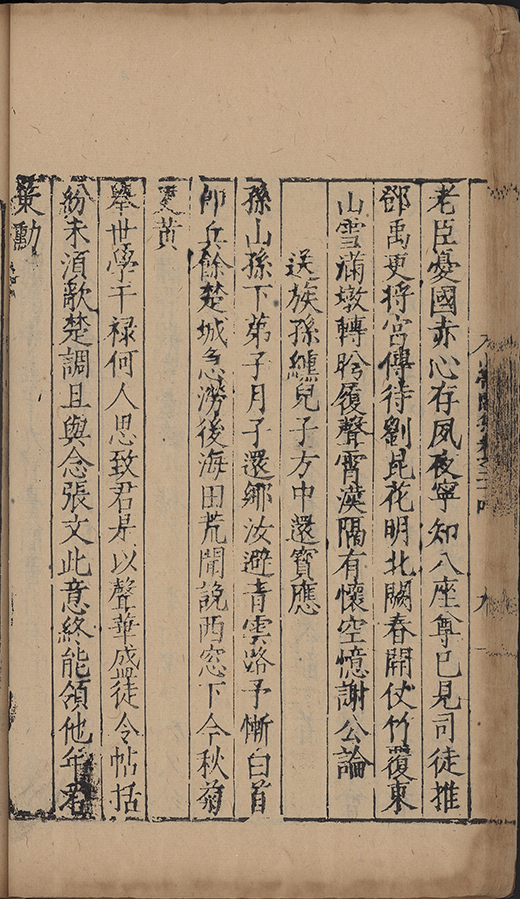 老臣憂國赤心存夙夜寧知八座尊已見司徒推
鄧禹更將宮傅待劉昆花明北闕春開仗竹覆東
山雪滿墩轉盻履聲霄漢隔有懷空憶謝公論
送族孫纁兒子方中還寶應
孫山孫下弟子月子還鄉汝避青雲路予慚白首
郎丘餘楚城急澇後海田荒聞說西窓下今秋菊
更黃
舉世學干祿何人思致君是以聲華盛徒令帖括
紛未須歌楚調且與念張文此意終能領他年君
策勳